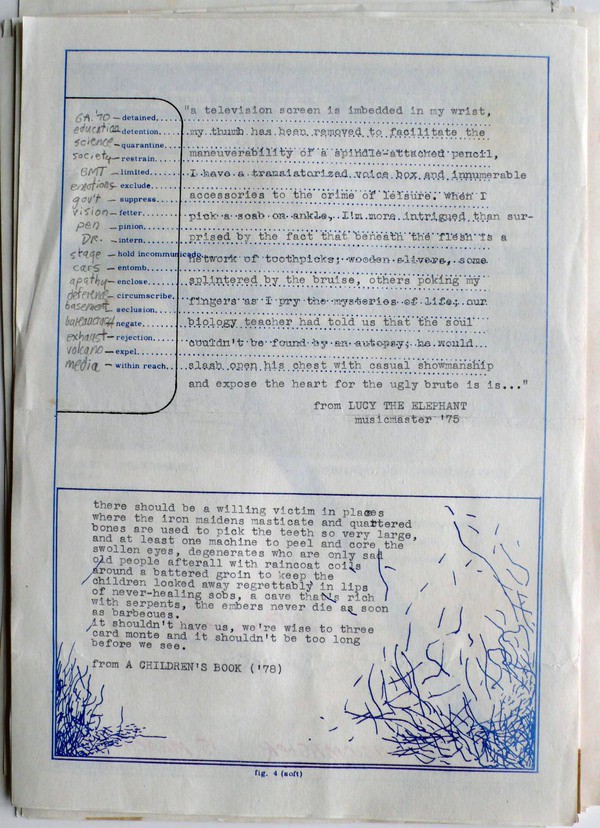 GA. '70 — detained,
education — detention,
science — quarantine,
society — restrain.
BMT — limited.
emotions — exclude.
gov't — suppress.
vision — fetter.
pen — pinion.
DR. — intern.
stage — hold incommunicado.
cars — entomb.
apathy — enclose.
defense — circumscribe.
basement seclusion.
bureaucracy negate.
exhaust — rejection.
volcano — expel.
media — within reach.
"a television screen is imbedded in my wrist,
my thumb has been removed to facilitate the
maneuverability of a spindle-attached pencil,
I have a transistorized voice box and innumerable
accessories to the crime of leisure. When I
pick a scab on ankle, I'm more intrigued than sur-
prised by the fact that beneath the flesh is a
network of toothpicks; wooden slivers, some
splintered by the bruise, others poking my
fingers as I pry the mysteries of life; our
biology teacher had told us that the soul
couldn't be found by an autopsy; he would
slash open his chest with casual showmanship
and expose the heart for the ugly brute is is..."
from LUCY THE ELEPHANT
musicmaster '75
there should be a willing victim in places
where the iron maidens masticate and quartered
bones are used to pick the teeth so very large,
and at least one machine to peel and core the
swollen eyes, degenerates who are only sad
old people afterall with raincoat coils
around a battered groin to keep the
children looked away regrettably in lips
of never-healing sobs, a cave that's rich
with serpents, the embers never die as soon
as barbecues.
it shouldn't have us, we're wise to three
card monte and it shouldn't be too long
before we see.
from A CHILDREN'S BOOK ('78)
fig. 4 (soft)